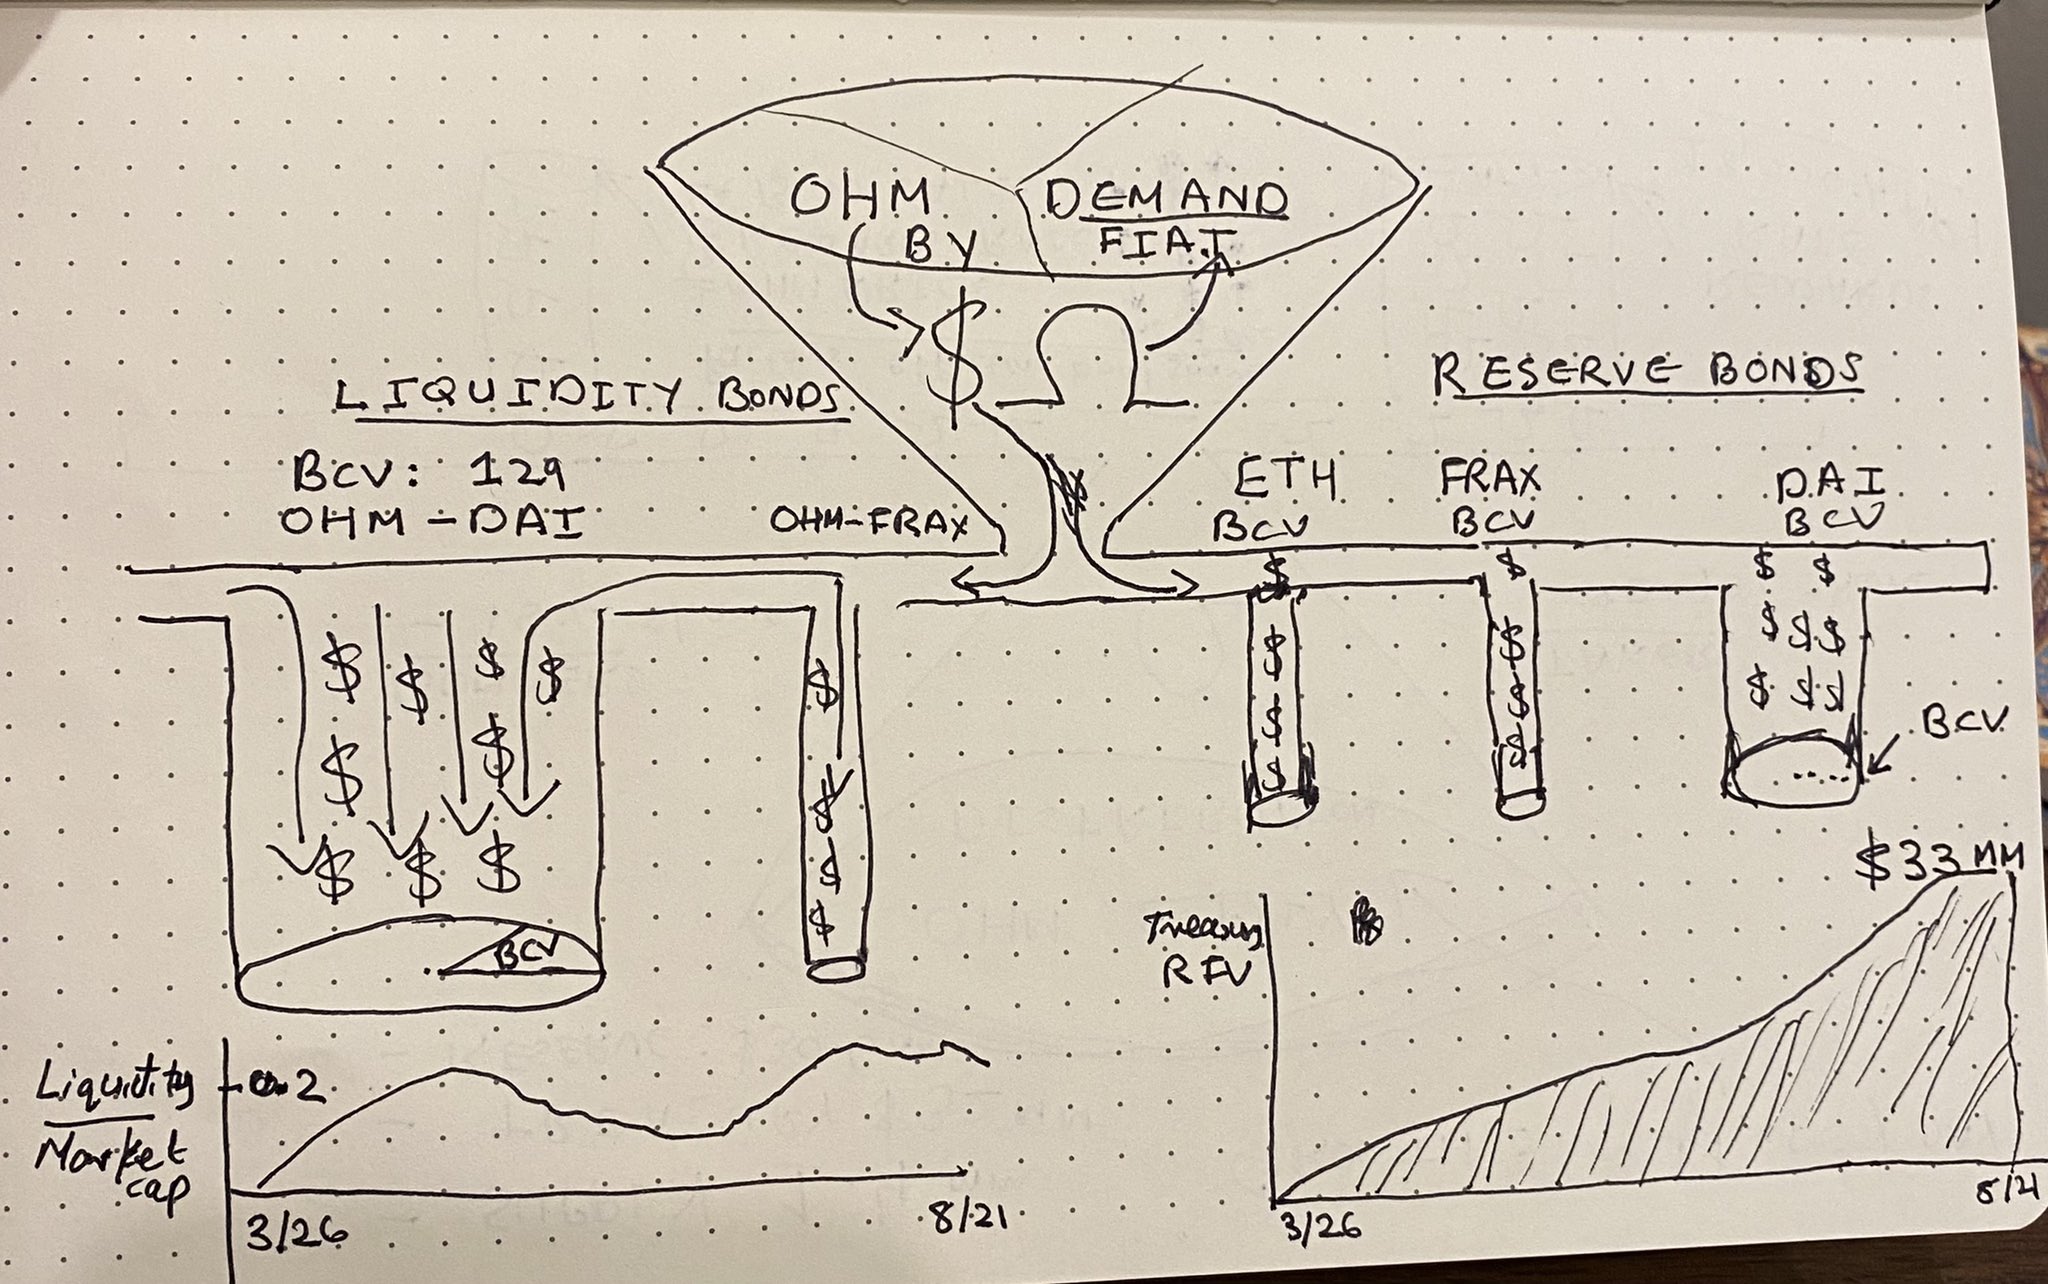 OHM DEMAND
BY FIAT
$ Ω
LIQUIDITY BONDS
RESERVE BONDS
BCV: 129
OHM-DAI
OHM-FRAX
ETH
BCV
FRAX
BCV
DAI
BCV
$ $ $ $
$ $
$ $ $
BCV
$
$
$
$
$
$
$
$
$
$
$
$
$
$
$ $
$ $ $
$ $ $
BCV
Liquidity
Market
cap
0.2
3/26
8/21
Treasury
RFV
$33 MM
3/26
8/21